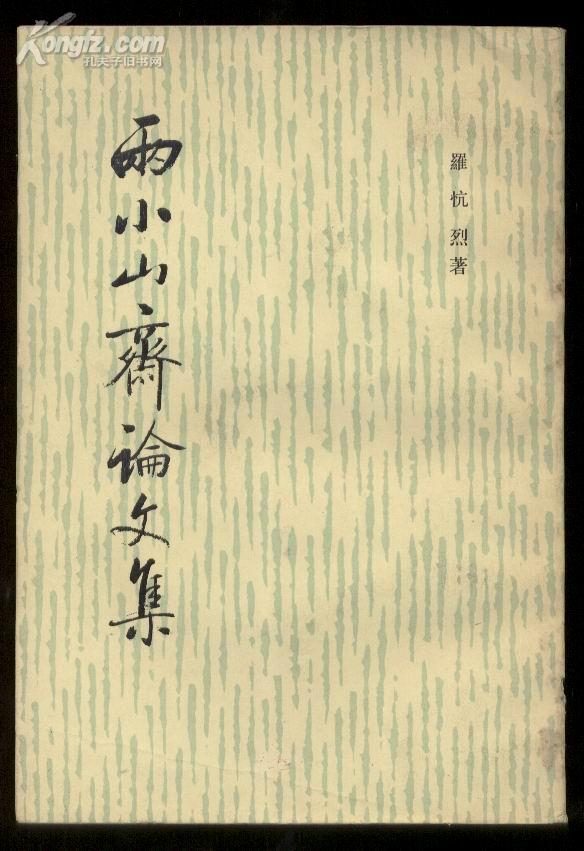 Kongfz.com
孔夫子旧书网
羅忼烈著
兩小山齋論文集